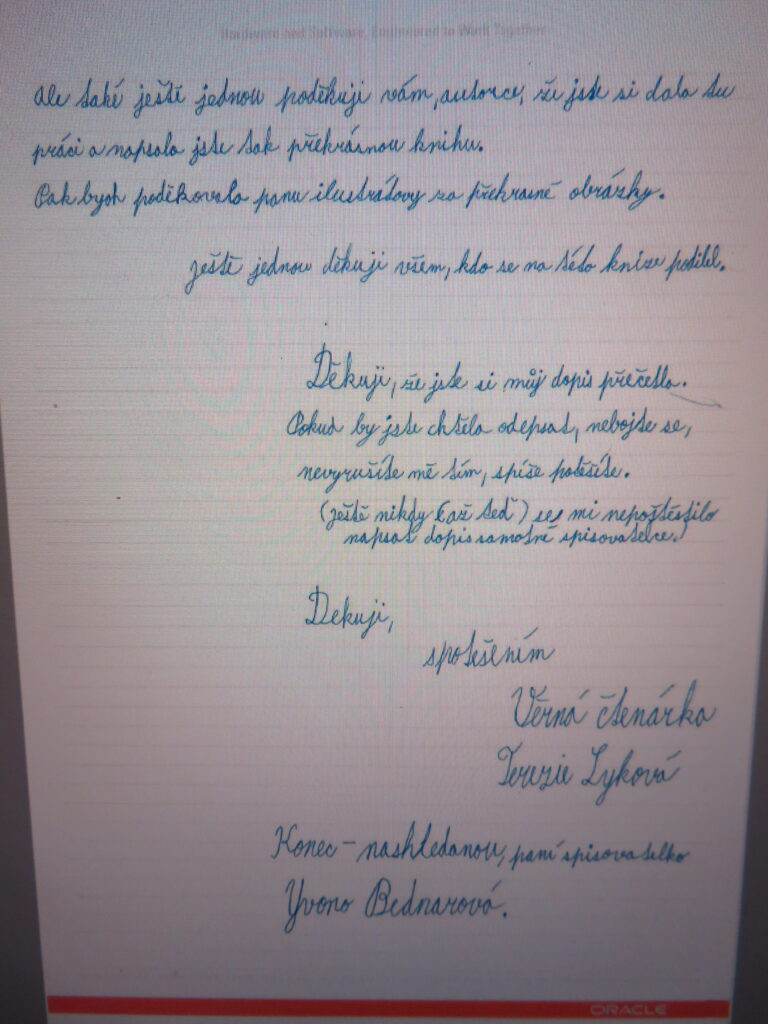 Hardware and Software, Engineered to Work Together
Ale také ještě jednou poděkuji vám, autorce, že jste si dala tu
práci a napsala jste tak překrásnou knihu.
Pak bych poděkovala panu ilustrátovy za překrasné obrázky.
ještě jednou děkuji všem, kdo se na této knize podílel.
Děkuji, že jste si můj dopis přečetla.
Pokud by jste chtěla odepsat, nebojte se,
nevyrušíte mě tím, spíše potěšíte.
(ještě nikdy (až teď) se mi nepoštěstilo
napsat dopis samotné spisovatelce.)
Dekuji,
spotěšením
Věrná čtenárka
Terezie Lyková
Konec – nashledanou, paní spisovatelko
Yvono Bednarová.
ORACLE